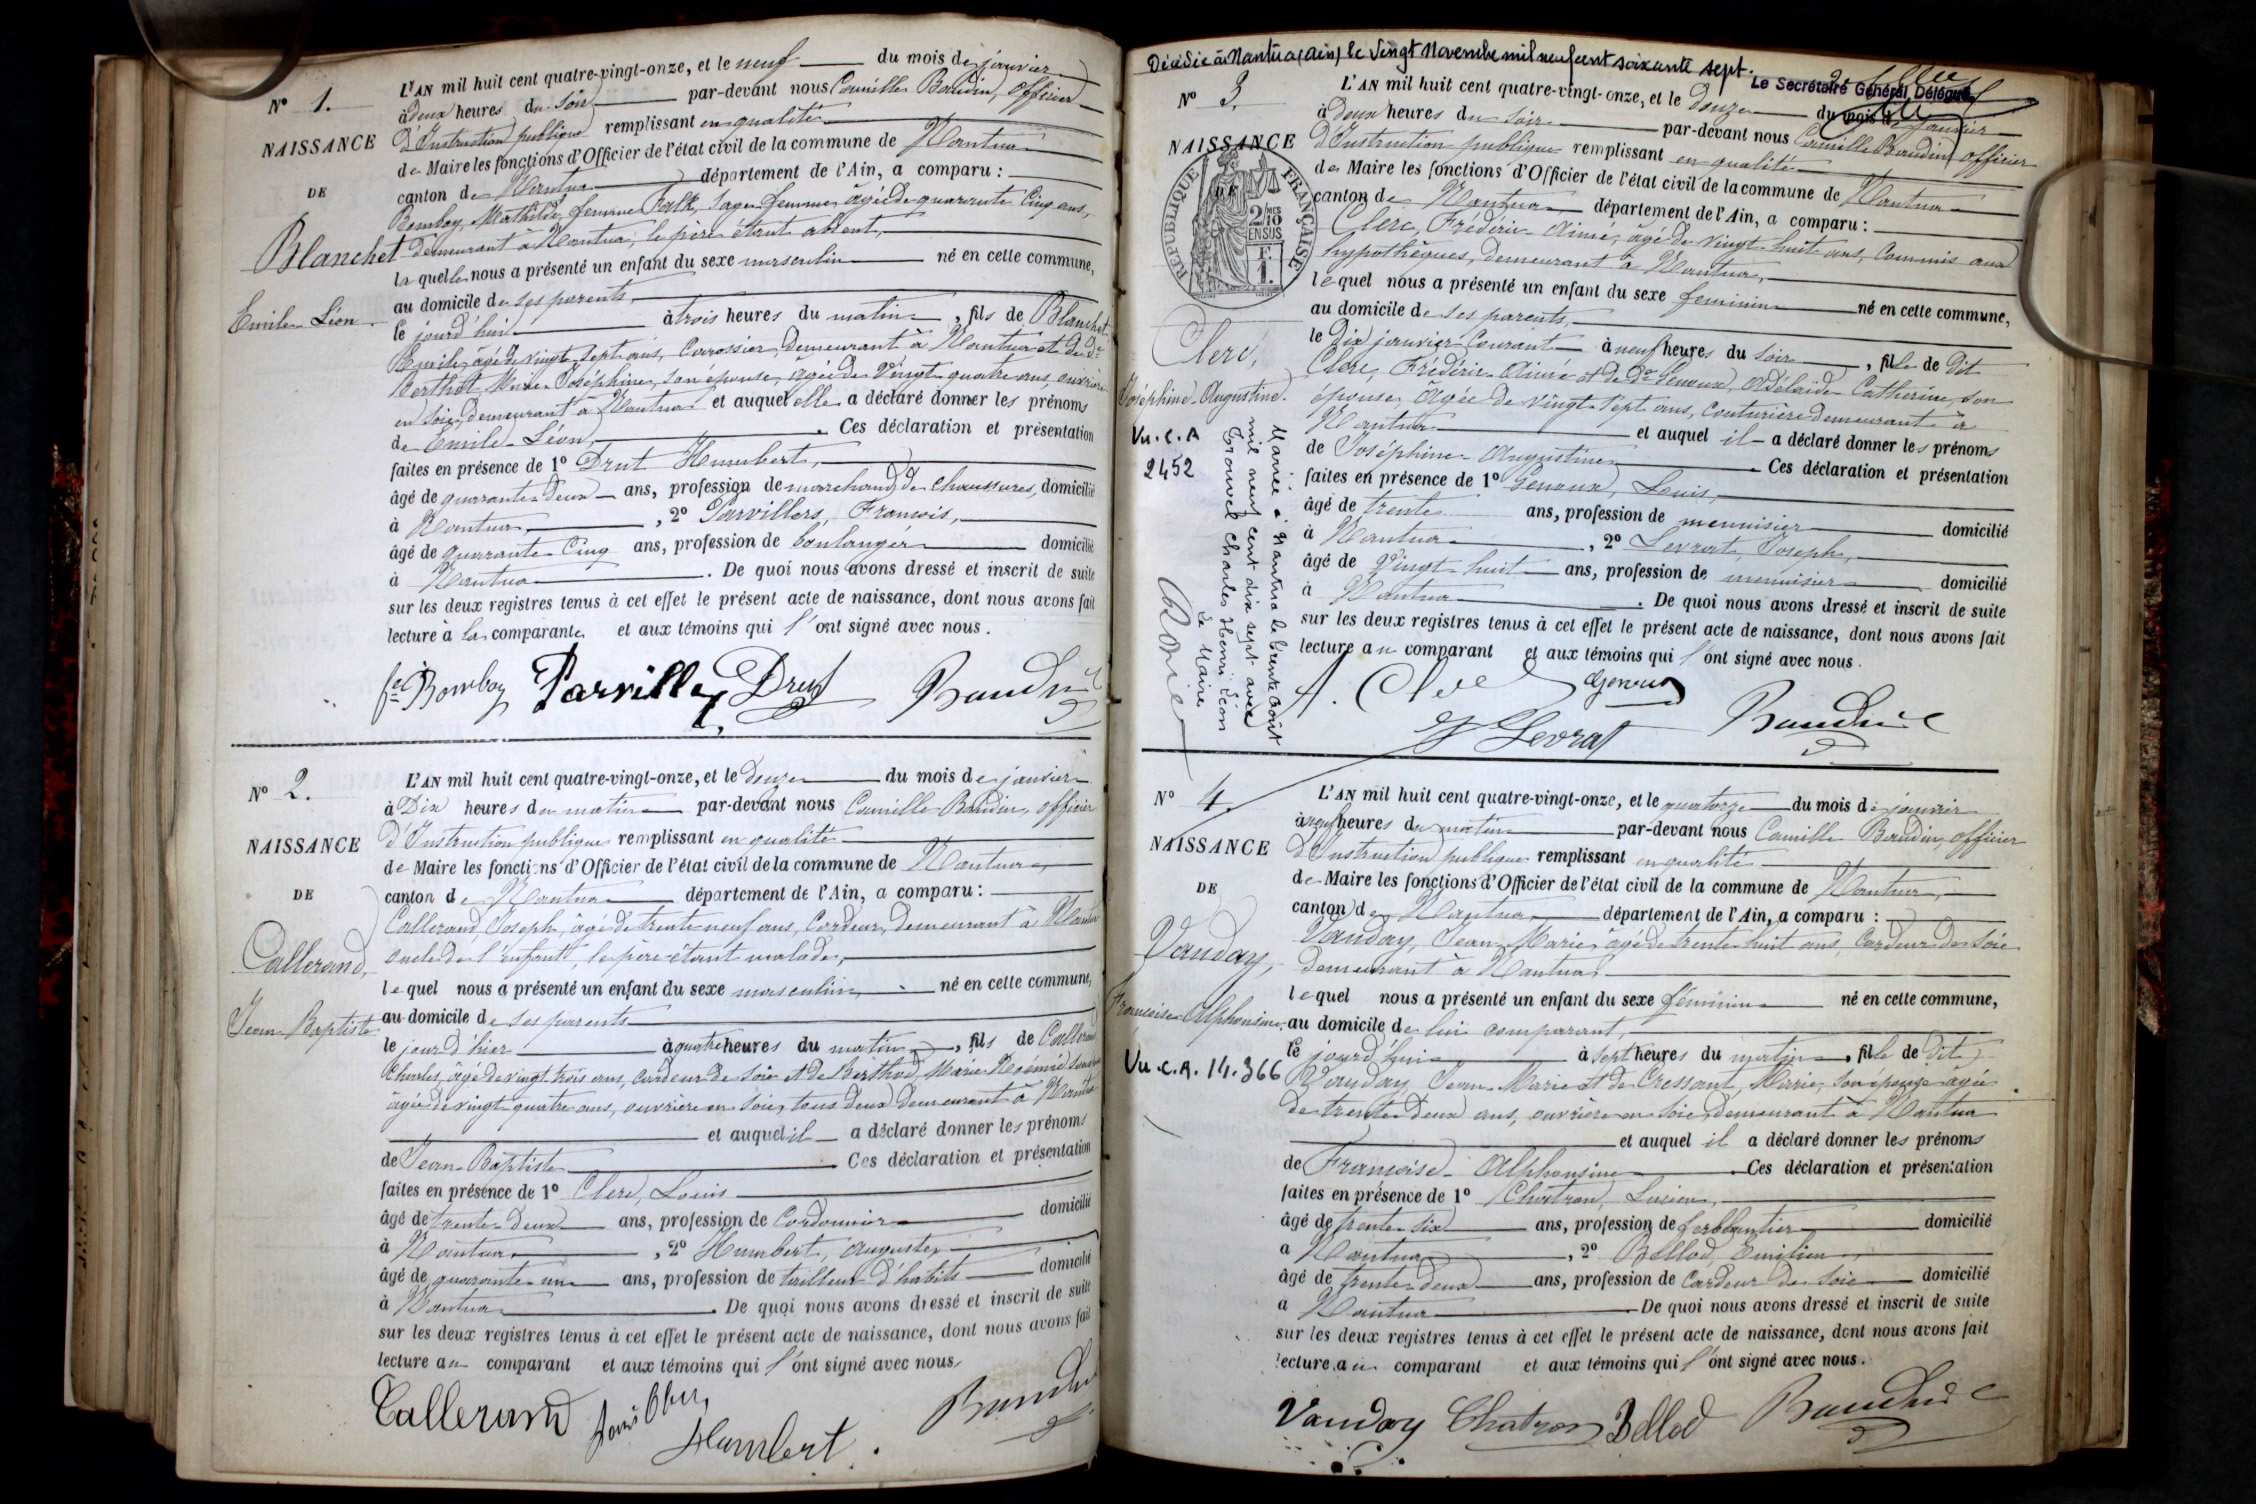 N° 1.
NAISSANCE
DE
Blanchet
Emile Léon
L'AN mil huit cent quatre-vingt-onze, et le neuf du mois de janvier
à deux heures du soir par-devant nous Camille Baudin, officier
d'Instruction publique remplissant en qualité
de Maire les fonctions d'Officier de l'état civil de la commune de Nantua
canton de Nantua département de l'Ain, a comparu :
Bomboy, Mathilde, femme Falk, sage-femme, âgée de quarante cinq ans,
demeurant à Nantua, le père étant absent,
la quelle nous a présenté un enfant du sexe masculin né en cette commune,
au domicile de ses parents,
le jourd'hui à trois heures du matin, fils de Blanchet
Emile, âgé de vingt sept ans, Carrossier, demeurant à Nantua et de De
Berthet, Marie Joséphine, son épouse, âgée de vingt quatre ans, ouvrière
en soie, demeurant à Nantua et auquel elle a déclaré donner les prénoms
de Emile Léon. Ces déclaration et présentation
faites en présence de 1° Drut Humbert,
âgé de quarante deux ans, profession de marchand de chaussures, domicilié
à Nantua, 2° Parvillers, François,
âgé de quarante cinq ans, profession de boulanger domicilié
à Nantua. De quoi nous avons dressé et inscrit de suite
sur les deux registres tenus à cet effet le présent acte de naissance, dont nous avons fait
lecture à la comparante et aux témoins qui l'ont signé avec nous.
fe Bomboy Parvillers Drut Baudin
N° 2.
NAISSANCE
DE
Callerand,
Jean Baptiste
L'AN mil huit cent quatre-vingt-onze, et le douze du mois de janvier
à Dix heures du matin par-devant nous Camille Baudin, officier
d'Instruction publique remplissant en qualité
de Maire les fonctions d'Officier de l'état civil de la commune de Nantua,
canton de Nantua département de l'Ain, a comparu :
Callerand, Joseph, âgé de trente neuf ans, Cardeur, demeurant à Nantua
oncle de l'enfant, le père étant malade,
le quel nous a présenté un enfant du sexe masculin né en cette commune,
au domicile de ses parents
le jour d'hier à quatre heures du matin, fils de Callerand
Charles, âgé de vingt trois ans, cardeur de soie et de Berthod, Marie
âgée de vingt quatre ans, ouvrière en soie, tous deux demeurant à Nantua
et auquel il a déclaré donner les prénoms
de Jean Baptiste. Ces déclaration et présentation
faites en présence de 1° Clerc, Louis
âgé de trente deux ans, profession de Cordonnier domicilié
à Nantua, 2° Humbert, Auguste,
âgé de quarante un ans, profession de tailleur d'habits domicilié
à Nantua. De quoi nous avons dressé et inscrit de suite
sur les deux registres tenus à cet effet le présent acte de naissance, dont nous avons fait
lecture au comparant et aux témoins qui l'ont signé avec nous.
Callerand Louis Clerc Humbert. Baudin
Décédée à Nantua (Ain) le vingt Novembre mil neuf cent soixante sept.
Le Secrétaire Général Délégué
N° 3.
NAISSANCE
DE
RÉPUBLIQUE FRANÇAISE
2/10 MES EN SUS
F. 1.
Clerc,
Joséphine Augustine.
Vu.C.A
2452
Mariée à Nantua le trente août
mil neuf cent dix sept avec
Charles Henri Léon
Le Maire
L'AN mil huit cent quatre-vingt-onze, et le douze du mois de janvier
à deux heures du soir par-devant nous Camille Baudin, officier
d'Instruction publique remplissant en qualité
de Maire les fonctions d'Officier de l'état civil de la commune de Nantua
canton de Nantua département de l'Ain, a comparu :
Clerc, Frédéric Aimé, âgé de vingt huit ans, Commis aux
hypothèques, demeurant à Nantua,
le quel nous a présenté un enfant du sexe féminin né en cette commune,
au domicile de ses parents,
le Dix janvier Courant à neuf heures du soir, fille de Dit
Clerc, Frédéric Aimé et de De Genoux, Adélaïde Catherine, son
épouse, âgée de vingt sept ans, Couturière demeurant à
Nantua et auquel il a déclaré donner les prénoms
de Joséphine Augustine. Ces déclaration et présentation
faites en présence de 1° Genoux, Louis,
âgé de trente ans, profession de menuisier domicilié
à Nantua, 2° Levrat, Joseph,
âgé de vingt huit ans, profession de menuisier domicilié
à Nantua. De quoi nous avons dressé et inscrit de suite
sur les deux registres tenus à cet effet le présent acte de naissance, dont nous avons fait
lecture au comparant et aux témoins qui l'ont signé avec nous.
A. Clerc Genoux
J Levrat Baudin
N° 4.
NAISSANCE
DE
Vauday,
Françoise Alphonsine.
Vu.C.A. 14.366
L'AN mil huit cent quatre-vingt-onze, et le quatorze du mois de janvier
à neuf heures du matin par-devant nous Camille Baudin, officier
d'Instruction publique remplissant en qualité
de Maire les fonctions d'Officier de l'état civil de la commune de Nantua,
canton de Nantua, département de l'Ain, a comparu :
Vauday, Jean Marie, âgé de trente huit ans, Cardeur de soie
demeurant à Nantua,
le quel nous a présenté un enfant du sexe féminin né en cette commune,
au domicile de lui comparant,
le jourd'hui à sept heures du matin, fille de Dit,
Vauday, Jean Marie et de Cressant, Marie, son épouse âgée
de trente deux ans, ouvrière en soie demeurant à Nantua
et auquel il a déclaré donner les prénoms
de Françoise Alphonsine. Ces déclaration et présentation
faites en présence de 1° Châtron, Lucien,
âgé de trente six ans, profession de ferblantier domicilié
à Nantua, 2° Bellod, Emilien
âgé de trente deux ans, profession de Cardeur de soie domicilié
à Nantua. De quoi nous avons dressé et inscrit de suite
sur les deux registres tenus à cet effet le présent acte de naissance, dont nous avons fait
lecture au comparant et aux témoins qui l'ont signé avec nous.
Vauday Chatron Bellod Baudin